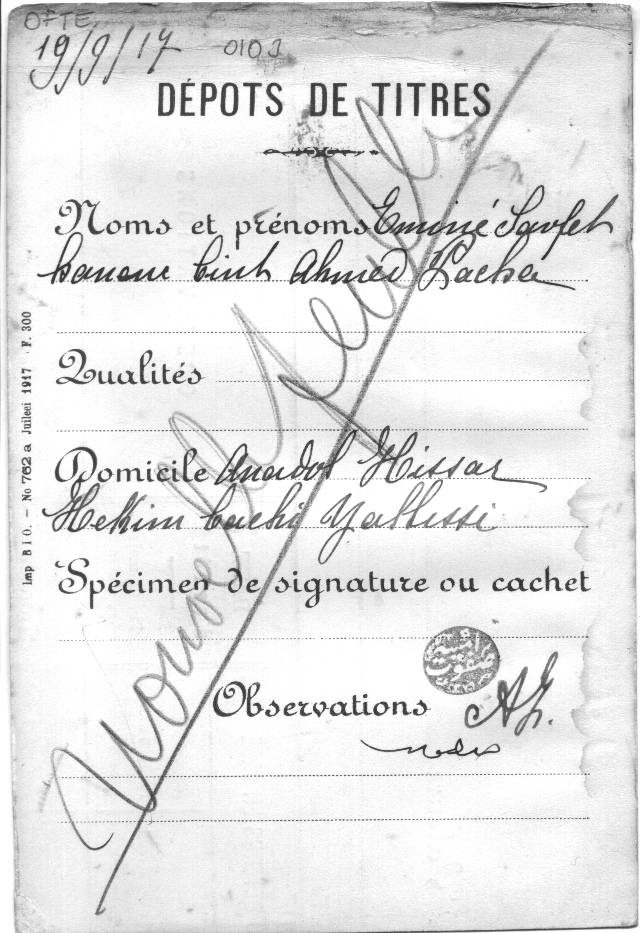 OFTE
19/9/17 0103
DÉPOTS DE TITRES
Noms et prénoms Eminé Savfet
hanem bint Ahmed Pacha
Qualités
Domicile Anadol Hissar
Hekim bachi Yallissi
Spécimen de signature ou cachet
Observations
Nouvelle feuille
Imp B I O. – No 762 a Juileei 1917 · F. 300